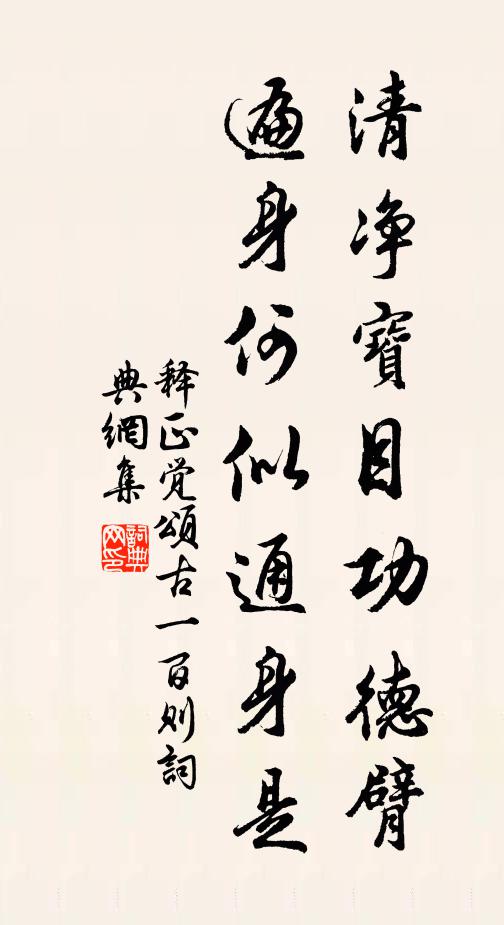 清净寶目功德臂
遍身何似通身是
释正觉頌古一百则詞
典網集
詞典
网印